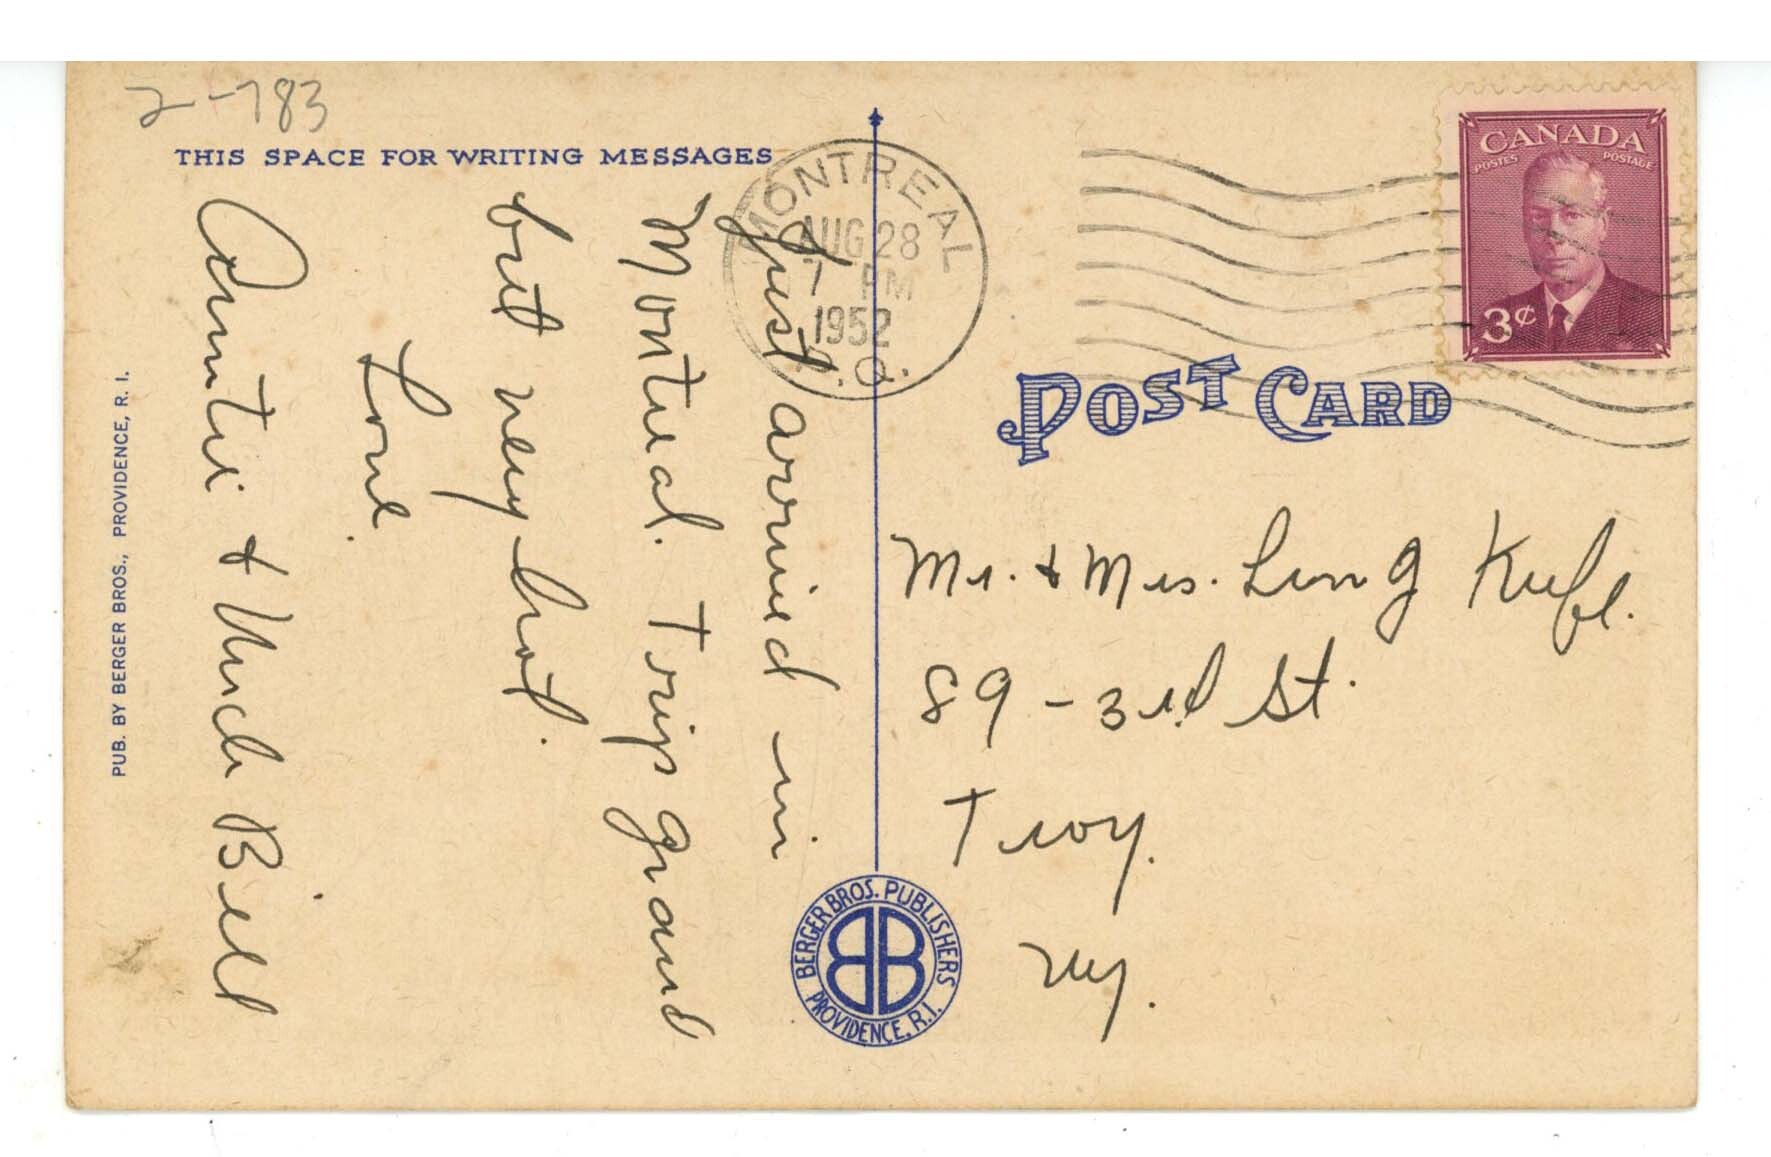 2-783
THIS SPACE FOR WRITING MESSAGES
Just arrived in
Montreal. Trip grand
but very hot.
Love.
Auntie + Uncle Bill
PUB. BY BERGER BROS., PROVIDENCE, R. I.
MONTREAL
AUG 28
7 PM
1952
P.Q.
CANADA
POSTES POSTAGE
3¢
POST CARD
Mr. + Mrs.
89 - 3rd St.
Troy.
NY.
BERGER BROS. PUBLISHERS
BB
PROVIDENCE, R.I.